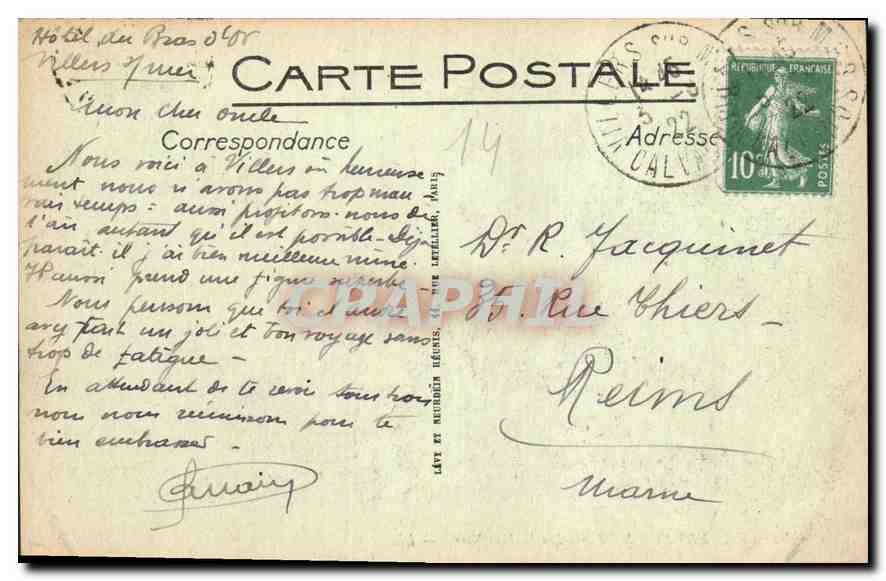 Hôtel du Bras d'Or
Villers s/mer
CARTE POSTALE
Mon cher oncle
Correspondance
Adresse
14
Nous voici à Villers où heureuse
ment nous n'avons pas trop mau
vais temps = aussi profitons-nous de
l'air autant qu'il est possible - Déjà
paraît-il j'ai bien meilleure mine.
H aussi prend une figure superbe -
Nous pensons que toi et André
avez fait un joli et bon voyage sans
trop de fatigue -
En attendant de te revoir tous trois
nous nous réunissons pour te
bien embrasser -
LÉVY ET NEURDEIN RÉUNIS, 44, RUE LETELLIER, PARIS
VILLERS SUR MER
22
CALVADOS
RÉPUBLIQUE FRANÇAISE
10
POSTES
Dr R. Jacquinet
35. Rue Thiers -
Reims
Marne
CPAPHIL